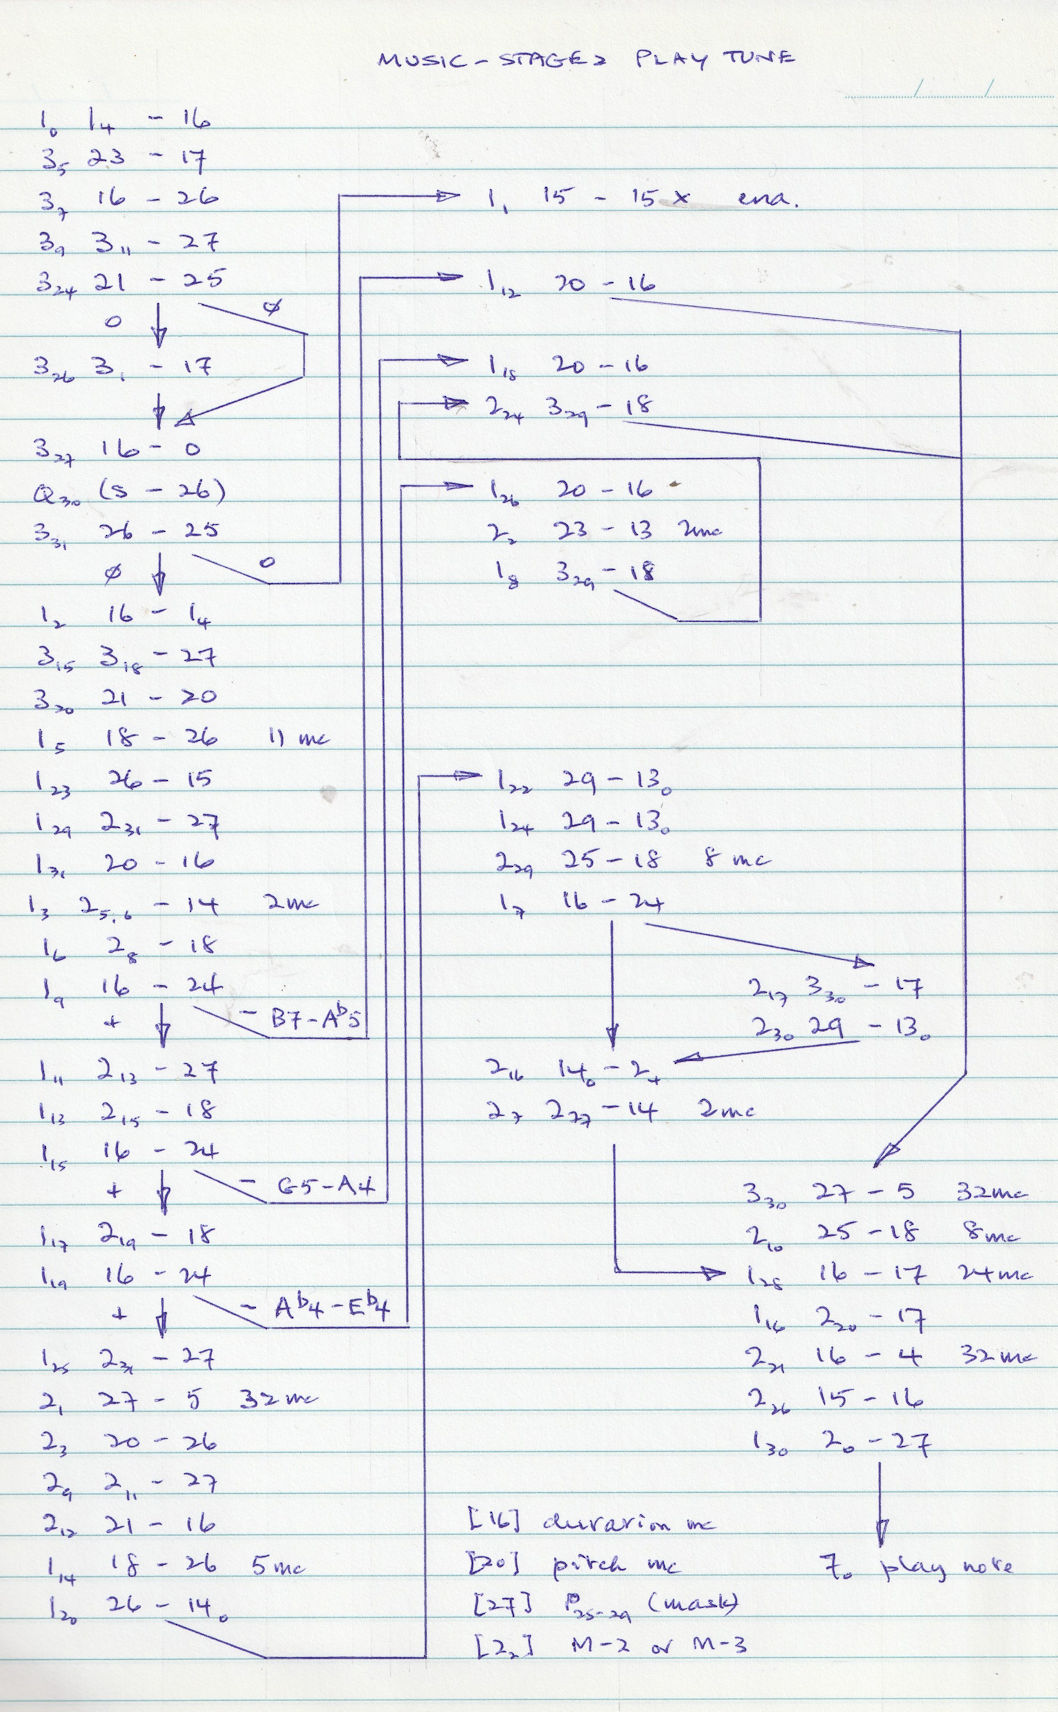 MUSIC - STAGE 2 PLAY TUNE
1₀ 1₄ - 16
3₅ 23 - 17
3₇ 16 - 26
3₉ 3₁₁ - 27
3₂₄ 21 - 25
0 ø
3₂₆ 3₁ - 17
3₂₇ 16 - 0
Q₃₀ (5 - 26)
3₃₁ 26 - 25
ø 0
1₂ 16 - 1₄
3₁₅ 3₁₈ - 27
3₂₀ 21 - 20
1₅ 18 - 26 11 mc
1₂₃ 26 - 15
1₂₉ 2₃₁ - 27
1₃₁ 20 - 16
1₃ 2₅,₆ - 14 2mc
1₆ 2₈ - 18
1₉ 16 - 24
+ - B7-A♭5
1₁₁ 2₁₃ - 27
1₁₃ 2₁₅ - 18
1₁₅ 16 - 24
+ - G5-A4
1₁₇ 2₁₉ - 18
1₁₉ 16 - 24
+ - A♭4-E♭4
1₂₅ - 27
2₁ 27 - 5 32mc
2₃ 20 - 26
2₉ 2₁₁ - 27
2₁₂ 21 - 16
1₁₄ 18 - 26 5mc
1₂₀ 26 - 14₀
1₁ 15 - 15 x end.
1₁₂ 20 - 16
1₁₈ 20 - 16
2₂₄ 3₂₉ - 18
1₂₆ 20 - 16
2₂ 23 - 13 2mc
1₈ 3₂₉ - 18
1₂₂ 29 - 13₀
1₂₄ 29 - 13₀
2₂₉ 25 - 18 8mc
1₇ 16 - 24
2₁₇ 3₃₀ - 17
2₃₀ 29 - 13₀
2₁₆ 14₀ - 2₄
2₇ 2₂₇ - 14 2mc
3₃₀ 27 - 5 32mc
2₁₀ 25 - 18 8mc
1₂₈ 16 - 17 24mc
1₁₆ 2₂₀ - 17
2₂₁ 16 - 4 32mc
2₂₆ 15 - 16
1₃₀ 2₀ - 27
7₀ play note
[16] duration mc
[20] pitch mc
[27] P₂₅₋₂₉ (mask)
[2₂] M-2 or M-3